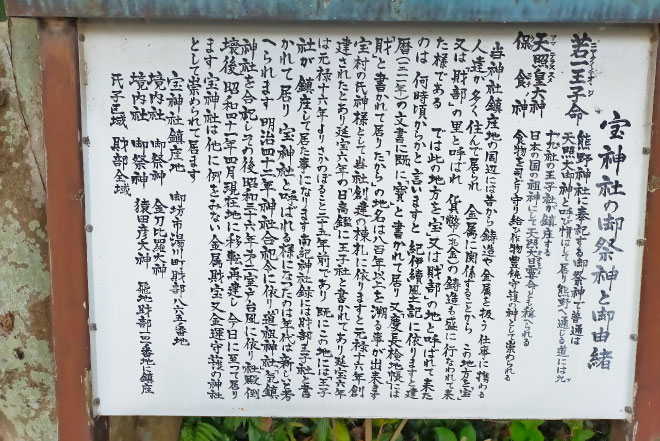 宝神社の御祭神と御由緒
ニャクイチオウジ
若一王子命
熊野神社に奉記する御祭神で普通は
天照大御神と呼び慣はして居り熊野へ通じる道には九
十九社の王子社が鎮座する
アマテラススメ
天照皇大神
日本の国の祖神にして天照大日霎命とも稱へられる
保食神
食物を司どり守り給ひ作物豊饒守護の神として崇められる
当神社鎮座地の周辺には昔から鋳造や金属を扱う仕事に携わる
人達が多く住んで居られ 金属に関係することから この地方を宝
又は財部の里と呼ばれ 貨幣(小金)の鋳造も盛に行われて来
た様である では此の地方を宝又は財部の地と呼ばれて来た
のは 何時頃からかと言いますと 紀伊續風土記に依りますと建
暦(一二一一年)の文書に既に寶と書かれて居り 又慶長検地帳には
財と書かれて居り たからの地名は八百年以上を溯る事が出来ます
宝村の氏神様として当社創造の棟札に依りますと元禄十六年創
建されたとあり延宝六年の日高鑑に王子社と書かれてあり延宝六年
は元禄十六年よりさかのぼること二十五年前であり 既にこの地には王子
社が鎮座して居た事になります 南紀神社録には財部王子社と書
かれて居り 宝神社と呼ばれる様になったのは年代は新しいと考
へられます 明治四十二年神社合記令に依り 道祖神社 気鎮
神社を合記しその後昭和三十六年第二室戸台風に依り社殿倒
壊後昭和四十一年四月現在地に移転再建し今日に至って居り
ます 宝神社は他に例をみない金属財宝又金運守護の神社
として崇められて居ます
宝神社鎮座地 御坊市湯川町財部八六五番地
境内社 御祭神 金刀比羅大神
境内社 御祭神 猿田彦大神 飛地財部一四〇番地に鎮座
氏子区域 財部全域